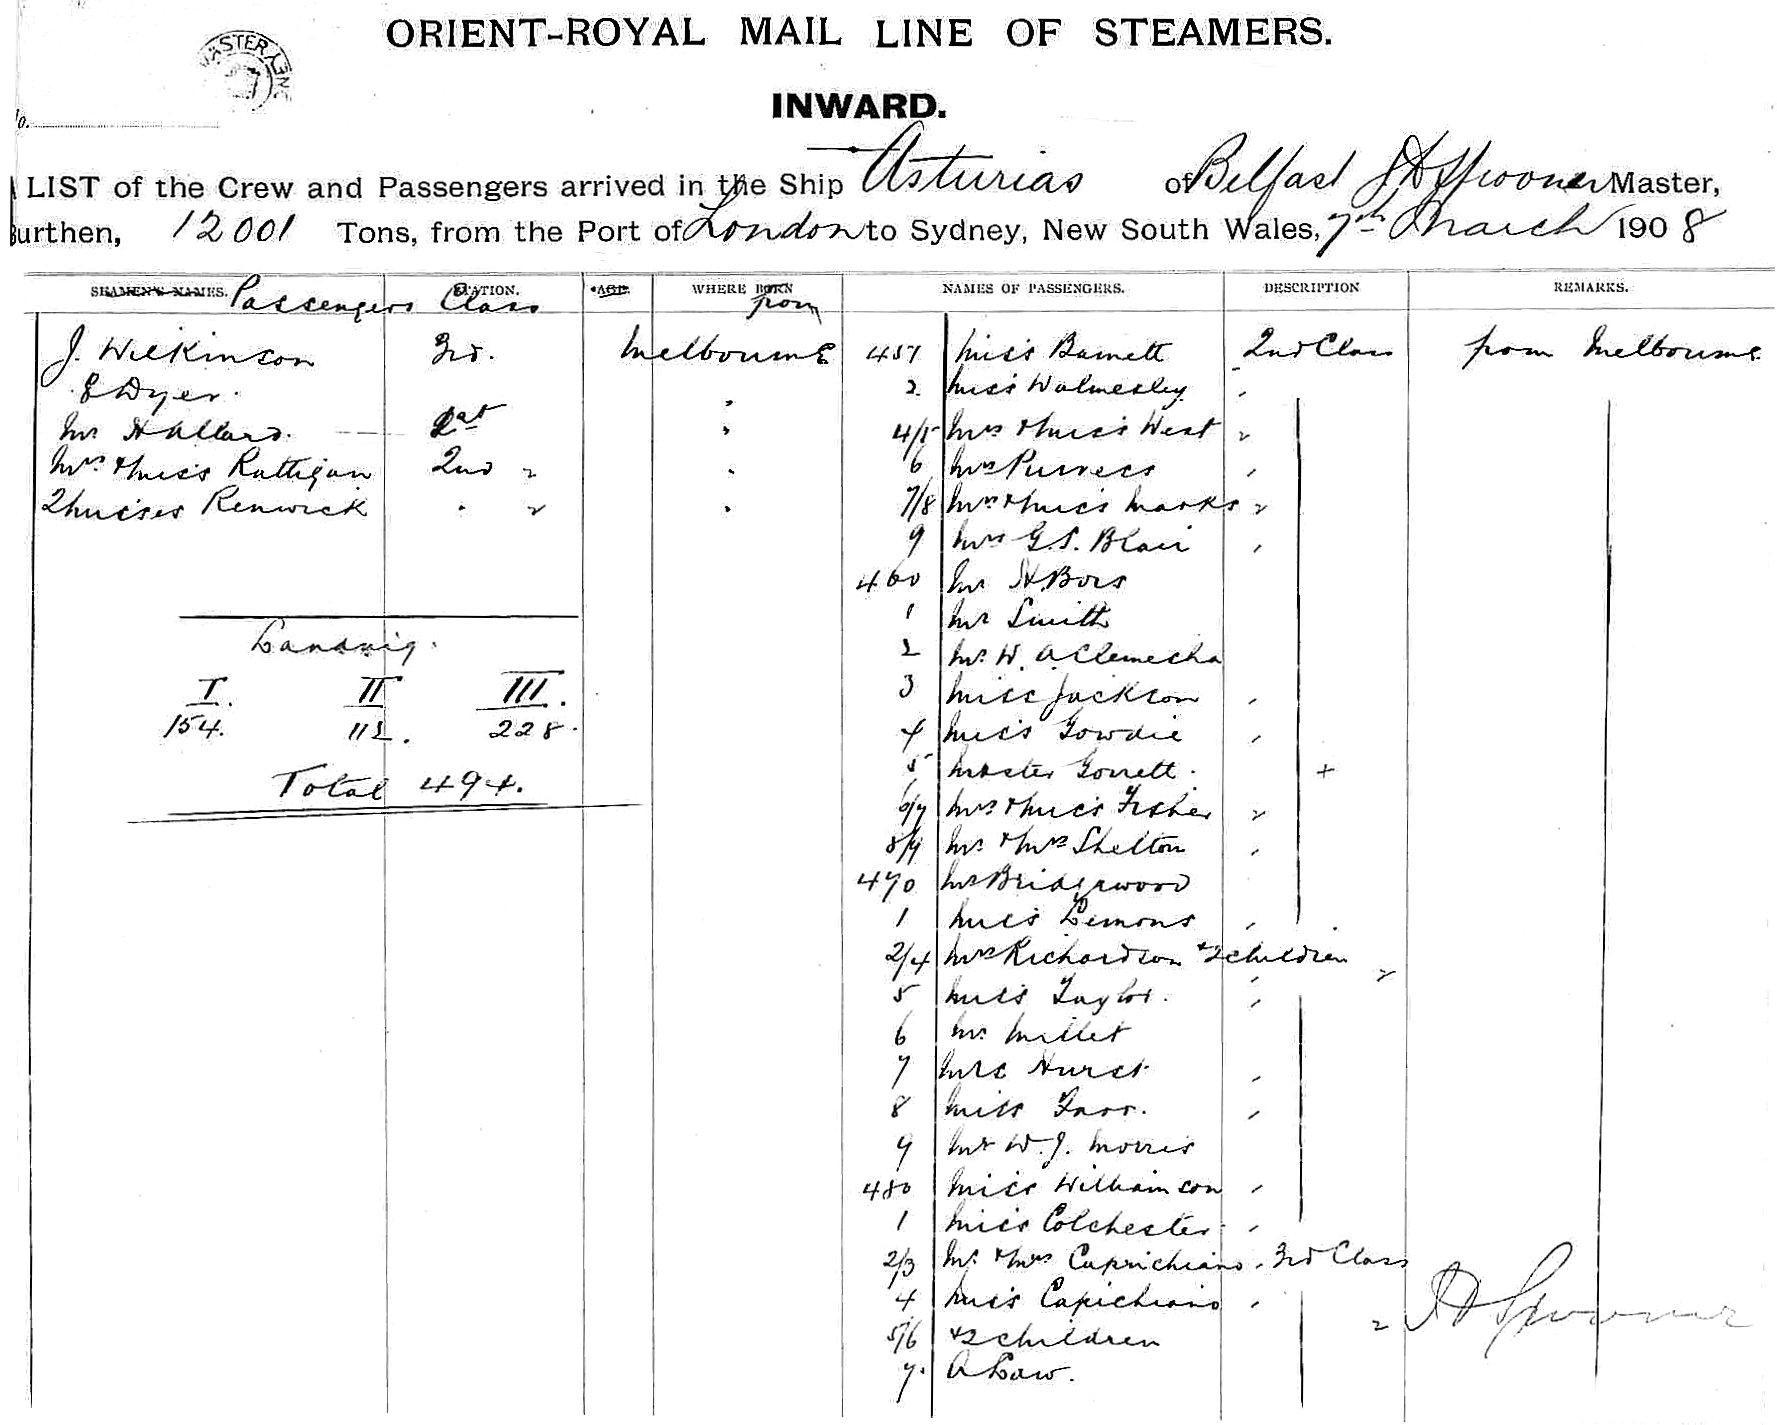 ORIENT-ROYAL MAIL LINE OF STEAMERS.
INWARD.
LIST of the Crew and Passengers arrived in the Ship Asturias of Belfast J H Spooner Master,
Burthen, 12001 Tons, from the Port of London to Sydney, New South Wales, 7th March 1908
SEAMEN'S NAMES. Passengers
STATION. Class
AGE.
WHERE BORN from
NAMES OF PASSENGERS.
DESCRIPTION
REMARKS.
J. Wilkinson 3rd. Melbourne
E Dyer. "
Mr H Allard. 1st "
Mrs & Miss Rattigan 2nd 2 "
2 Misses Renwick " 2 "
Landing.
I. II III.
154. 112. 228.
Total 494.
457 Miss Barnett 2nd Class from Melbourne
2 Miss Walmesley
4/5 Mrs & Miss West 2
6 Mrs Purvess
7/8 Mrs & Miss Marks 2
9 Mrs G.S. Blair
460 Mr H Bois
1 Mr Smith
2 Mr W. A Clemecha
3 Miss Jackson
4 Miss Gowdie
5 Master Gorrett. +
6/7 Mrs & Miss Fisher 2
8/9 Mr & Mrs Shelton
470 Mr Bridgwood
1 Miss Lemons
2/4 Mrs Richardson & 2 children 2
5 Miss Taylor.
6 Mr Millet
7 Mrs Hurst
8 Miss Farr.
9 Mr W. J. Morris
480 Miss Williamson
1 Miss Colchester
2/3 Mr & Mrs Caprichiano 3rd Class
4 Miss Capichiano
5/6 & 2 children 2
7. A Law.
J H Spooner